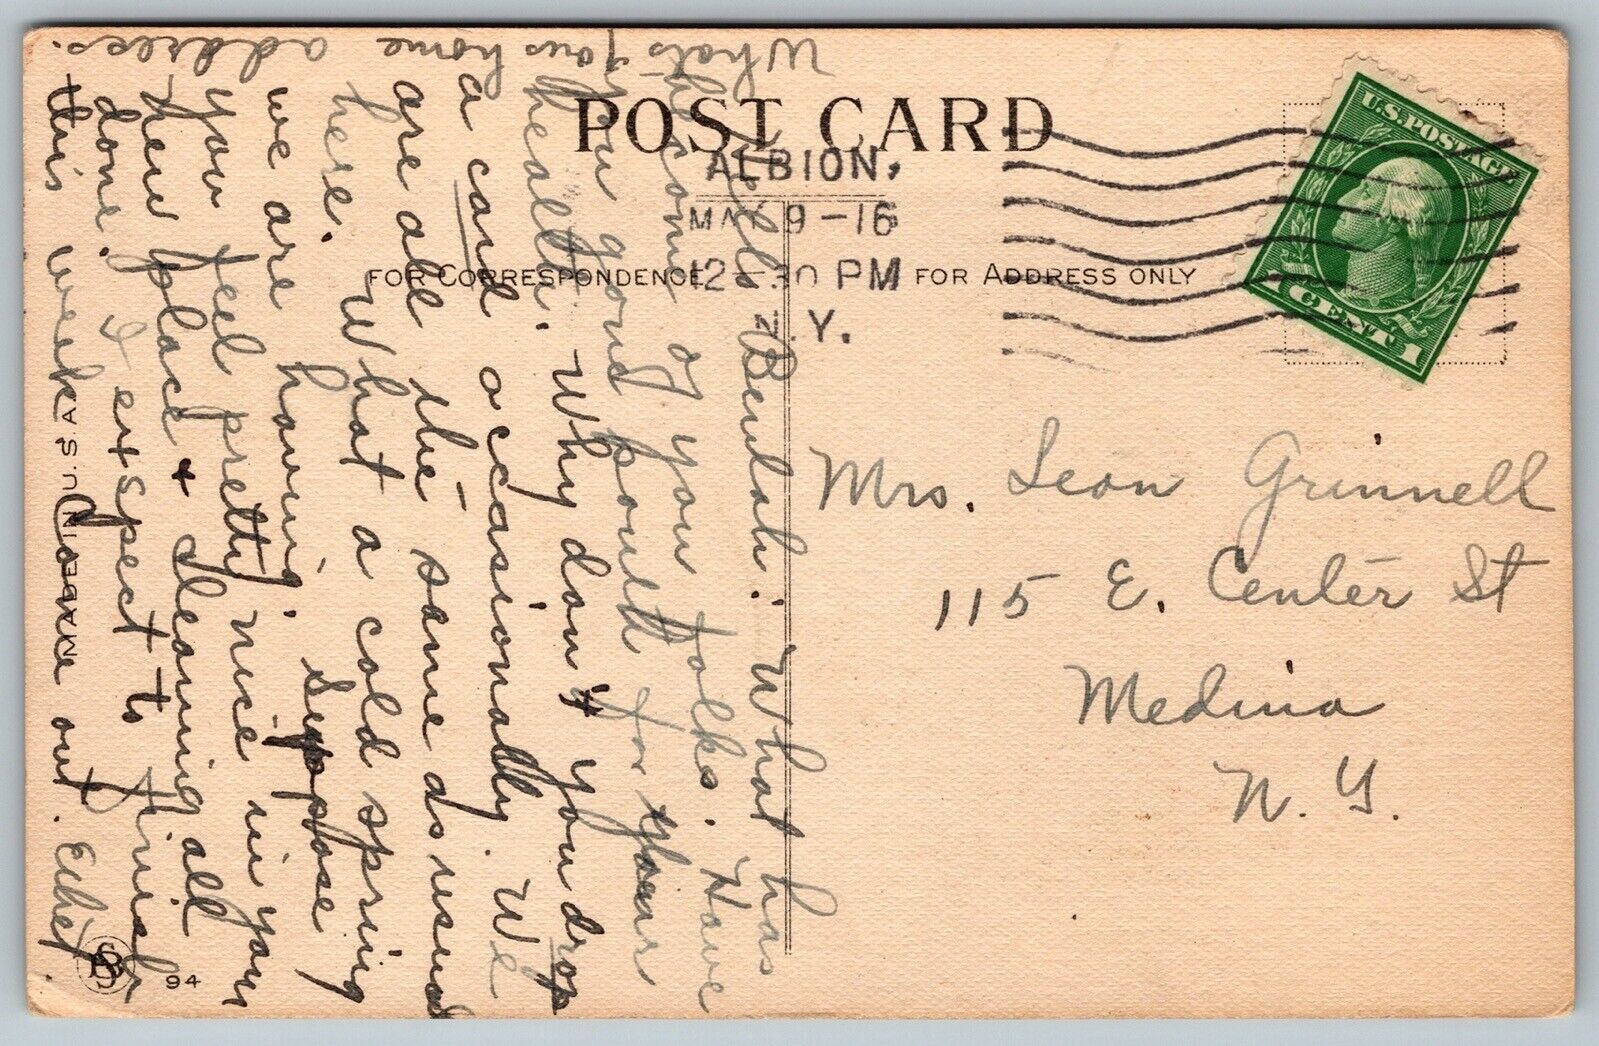 POST CARD
ALBION,
MAY 9-16
12-30 PM
N.Y.
FOR CORRESPONDENCE
FOR ADDRESS ONLY
U.S. POSTAGE
1 CENT 1
Mrs. Leon Grinnell
115 E. Center St
Medina
N. Y.
Hello Beulah: What has
become of you folks. Have
you gone south for your
health. Why don't you drop
a card occasionally. We
are all the same as usual
here. What a cold spring
we are having. Suppose
you feel pretty nice in your
new place & cleaning all
done. I exspect to finish
this week Come out. Ethel.
What's your home
address.
MADE IN U.S.A.
94